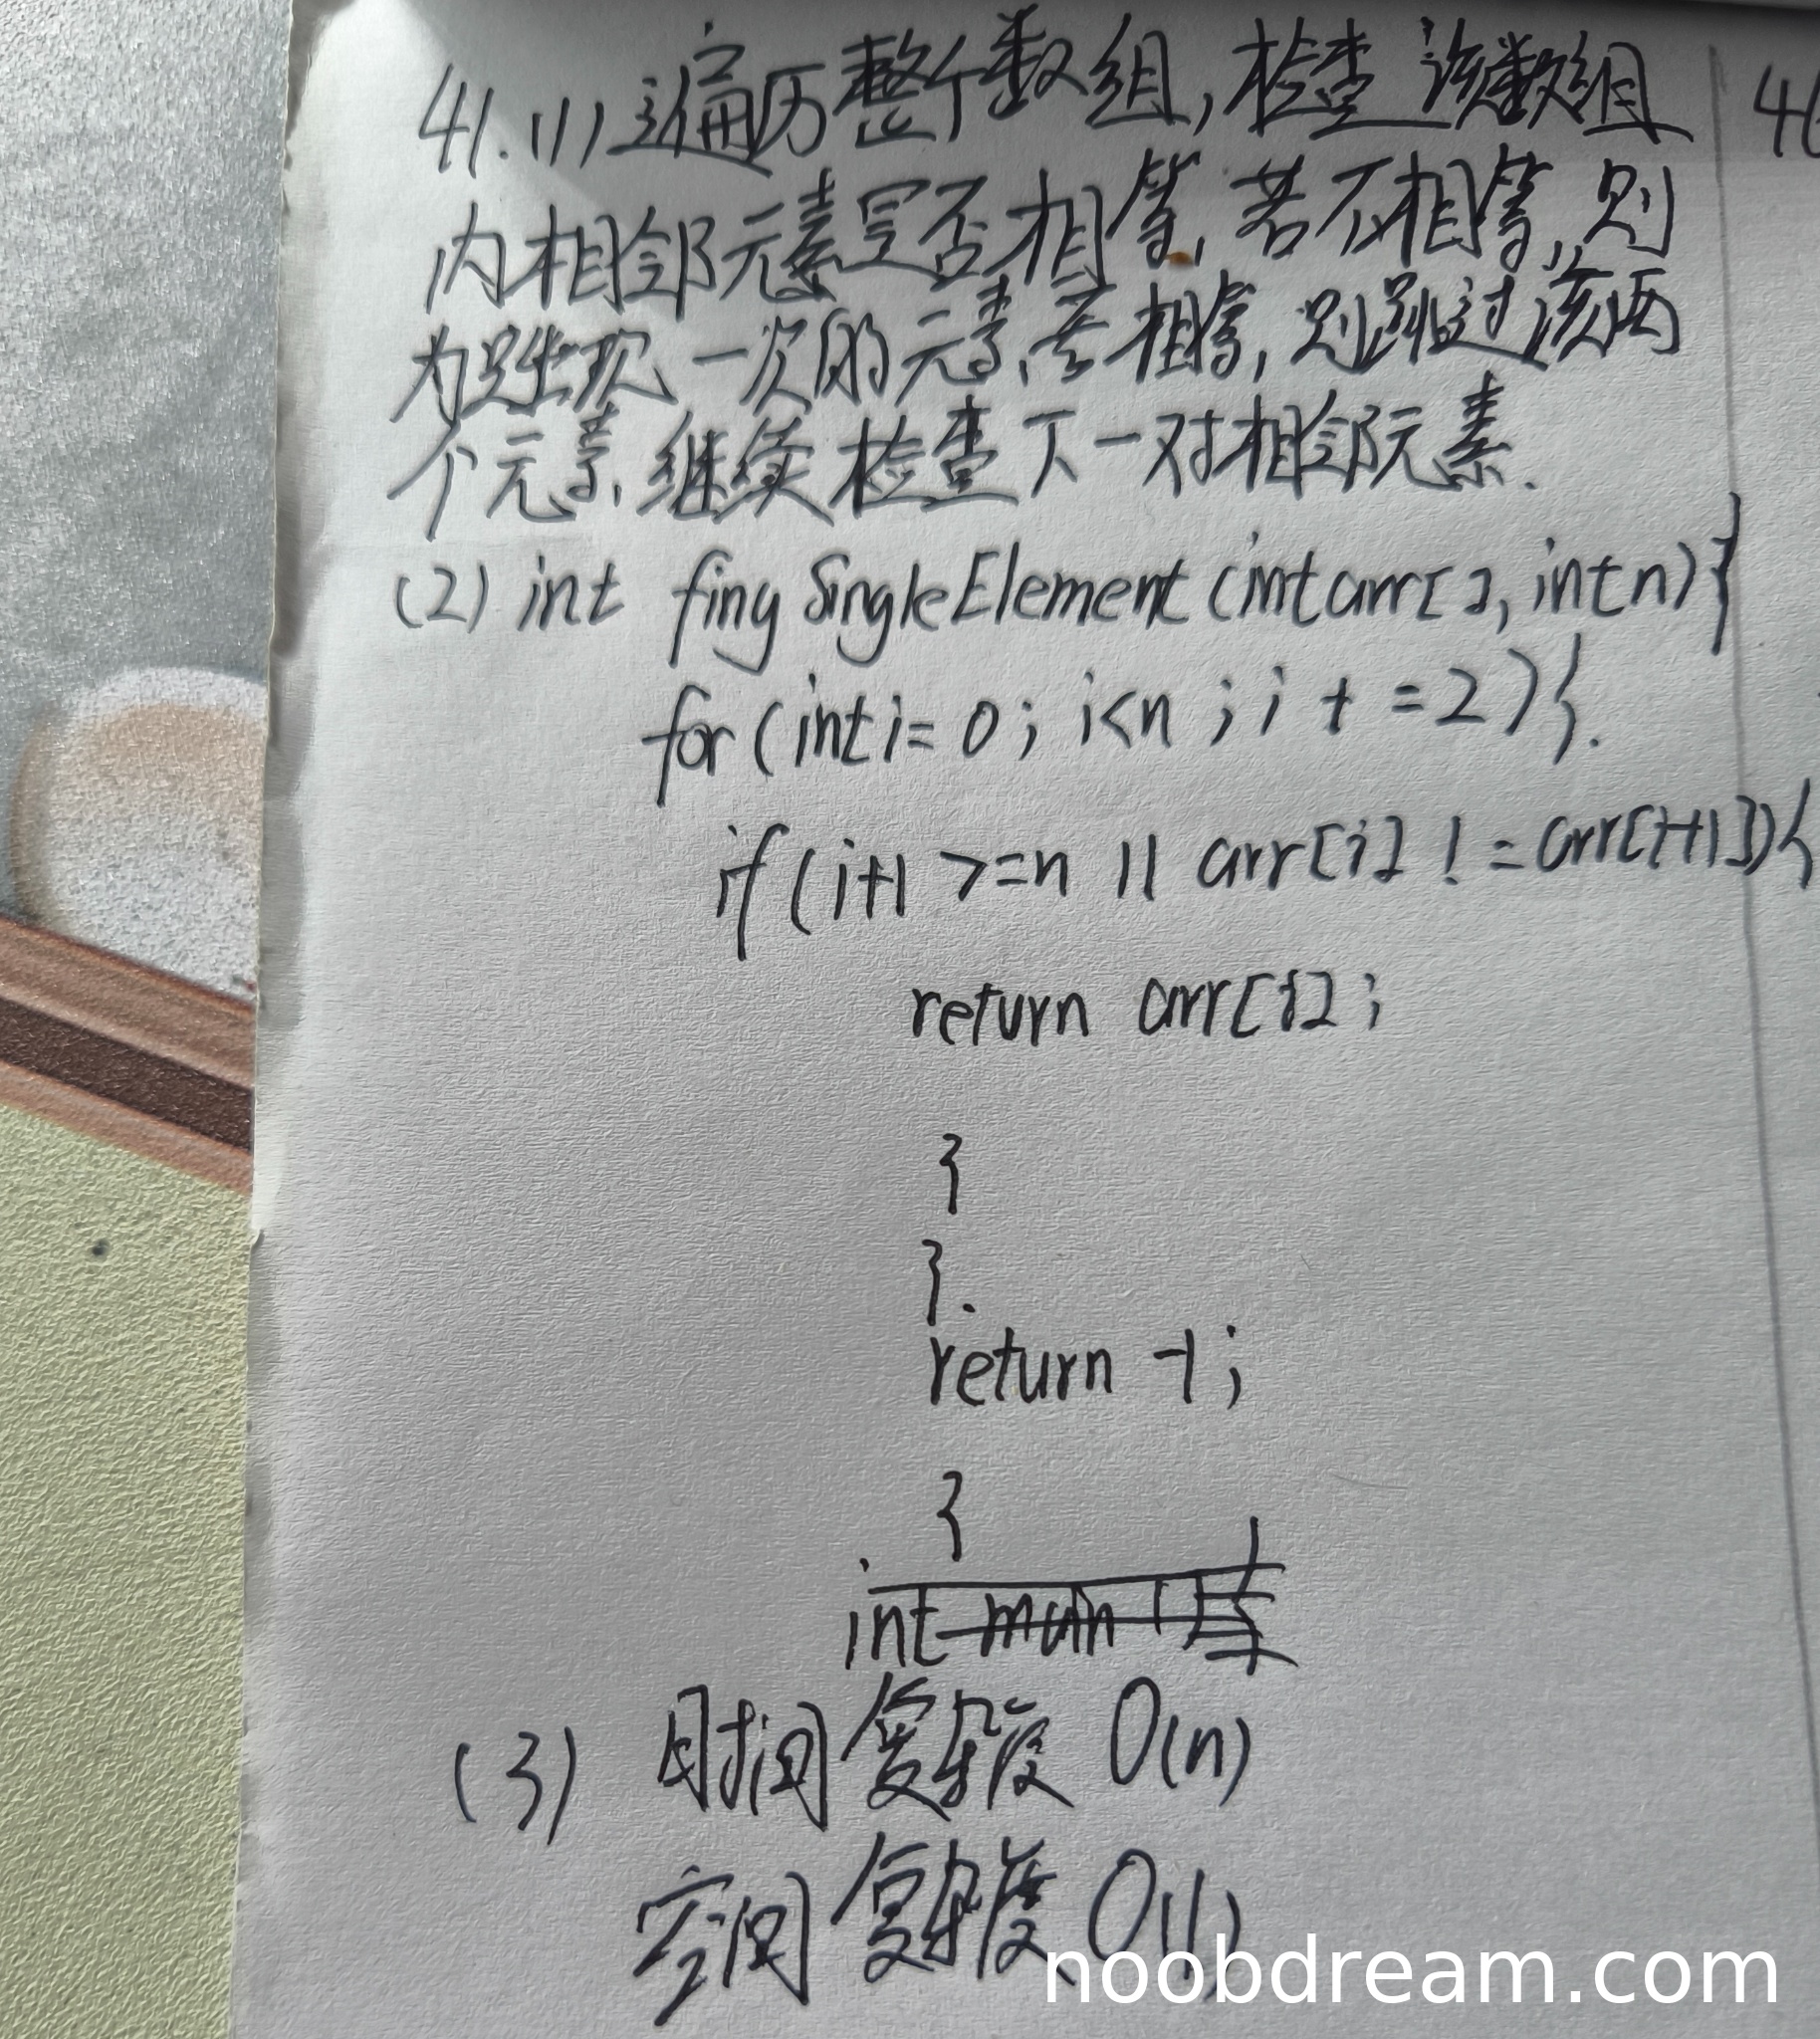 41.(1)遍历整个数组,检查该数组
内相邻元素是否相等,若不相等,则
为只出现一次的元素,若相等,则跳过该两
个元素,继续检查下一对相邻元素.
(2) int fing SingleElement (int arr[], int n){
for(int i= 0; i<n ; i + =2){.
if(i+1 >=n || arr[i] != arr[i+1]){
return arr[i];
}
}.
return -1;
}
int main(){
(3) 时间复杂度 O(n)
空间复杂度 O(1)
noobdream.com